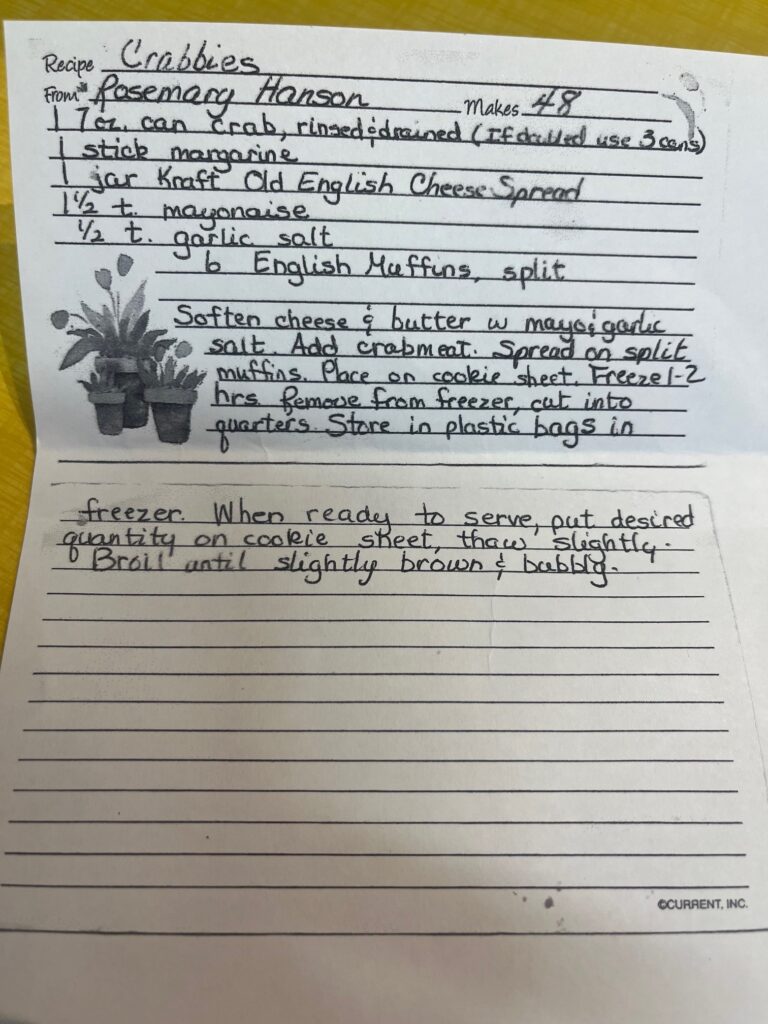 Recipe Crabbies
From Rosemary Hanson Makes 48
1 7oz. can crab, rinsed & drained (If doubled use 3 cans)
1 stick margarine
1 jar Kraft Old English Cheese Spread
1 1/2 t. mayonaise
1/2 t. garlic salt
6 English Muffins, split
Soften cheese & butter w mayo & garlic
salt. Add crabmeat. Spread on split
muffins. Place on cookie sheet. Freeze 1-2
hrs Remove from freezer, cut into
quarters. Store in plastic bags in
freezer. When ready to serve, put desired
quantity on cookie sheet, thaw slightly.
Broil until slightly brown & bubbly.
©CURRENT, INC.